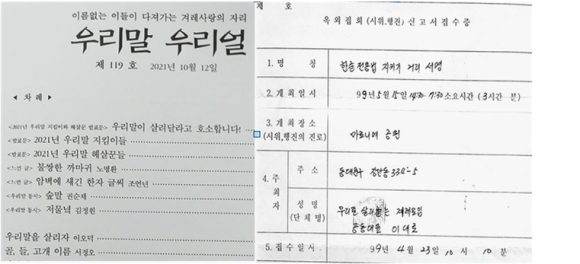 이름없는 이들이 다져가는 겨레사랑의 자리
우리말 우리얼
제 119 호 2021년 10월 12일
◀ 차례 ▶
<2021년 우리말 지킴이와 헤살꾼 발표문> 우리말이 살려달라고 호소합니다!
<발표문> 2021년 우리말 지킴이들
<발표문> 2021년 우리말 헤살꾼들
<느낀 글> 불쌍한 까마귀 노명환
<느낀 글> 암벽에 새긴 한자 글씨 조언년
<우리말 동시> 숲말 권순채
<우리말 동시> 저물녘 김정원
우리말을 살리자 이오덕
골, 들, 고개 이름 서정오
제 호
옥외집회 (시위,행진) 신고서접수증
1. 명 칭 한글전용법 지키기 거리 서명
2. 개최일시 99년 5월 15일 14:30 17:30 소요시간 (3시간 분)
3. 개최장소
(시위,행진의 진로) 마로니에 공원
4. 주최자
주 소 동대문구 장안동 334-5
성 명
(단체명) 우리말 살리는 겨레모임
공동대표 이대로
5. 접수일시 99년 4월 23일 10시 10분